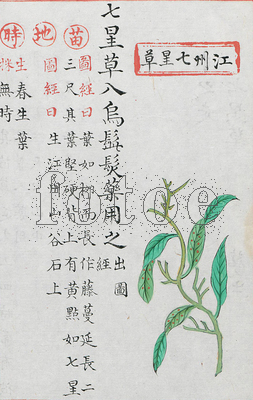 江州七星草
七星草入烏髭髮藥用之出圖經
苗 圖經曰葉如柳而長作藤蔓延長二
三尺其葉堅硬背上有黃點如七星
地 圖經曰生江州山谷石上
時 生春生葉
採無時
fotoe